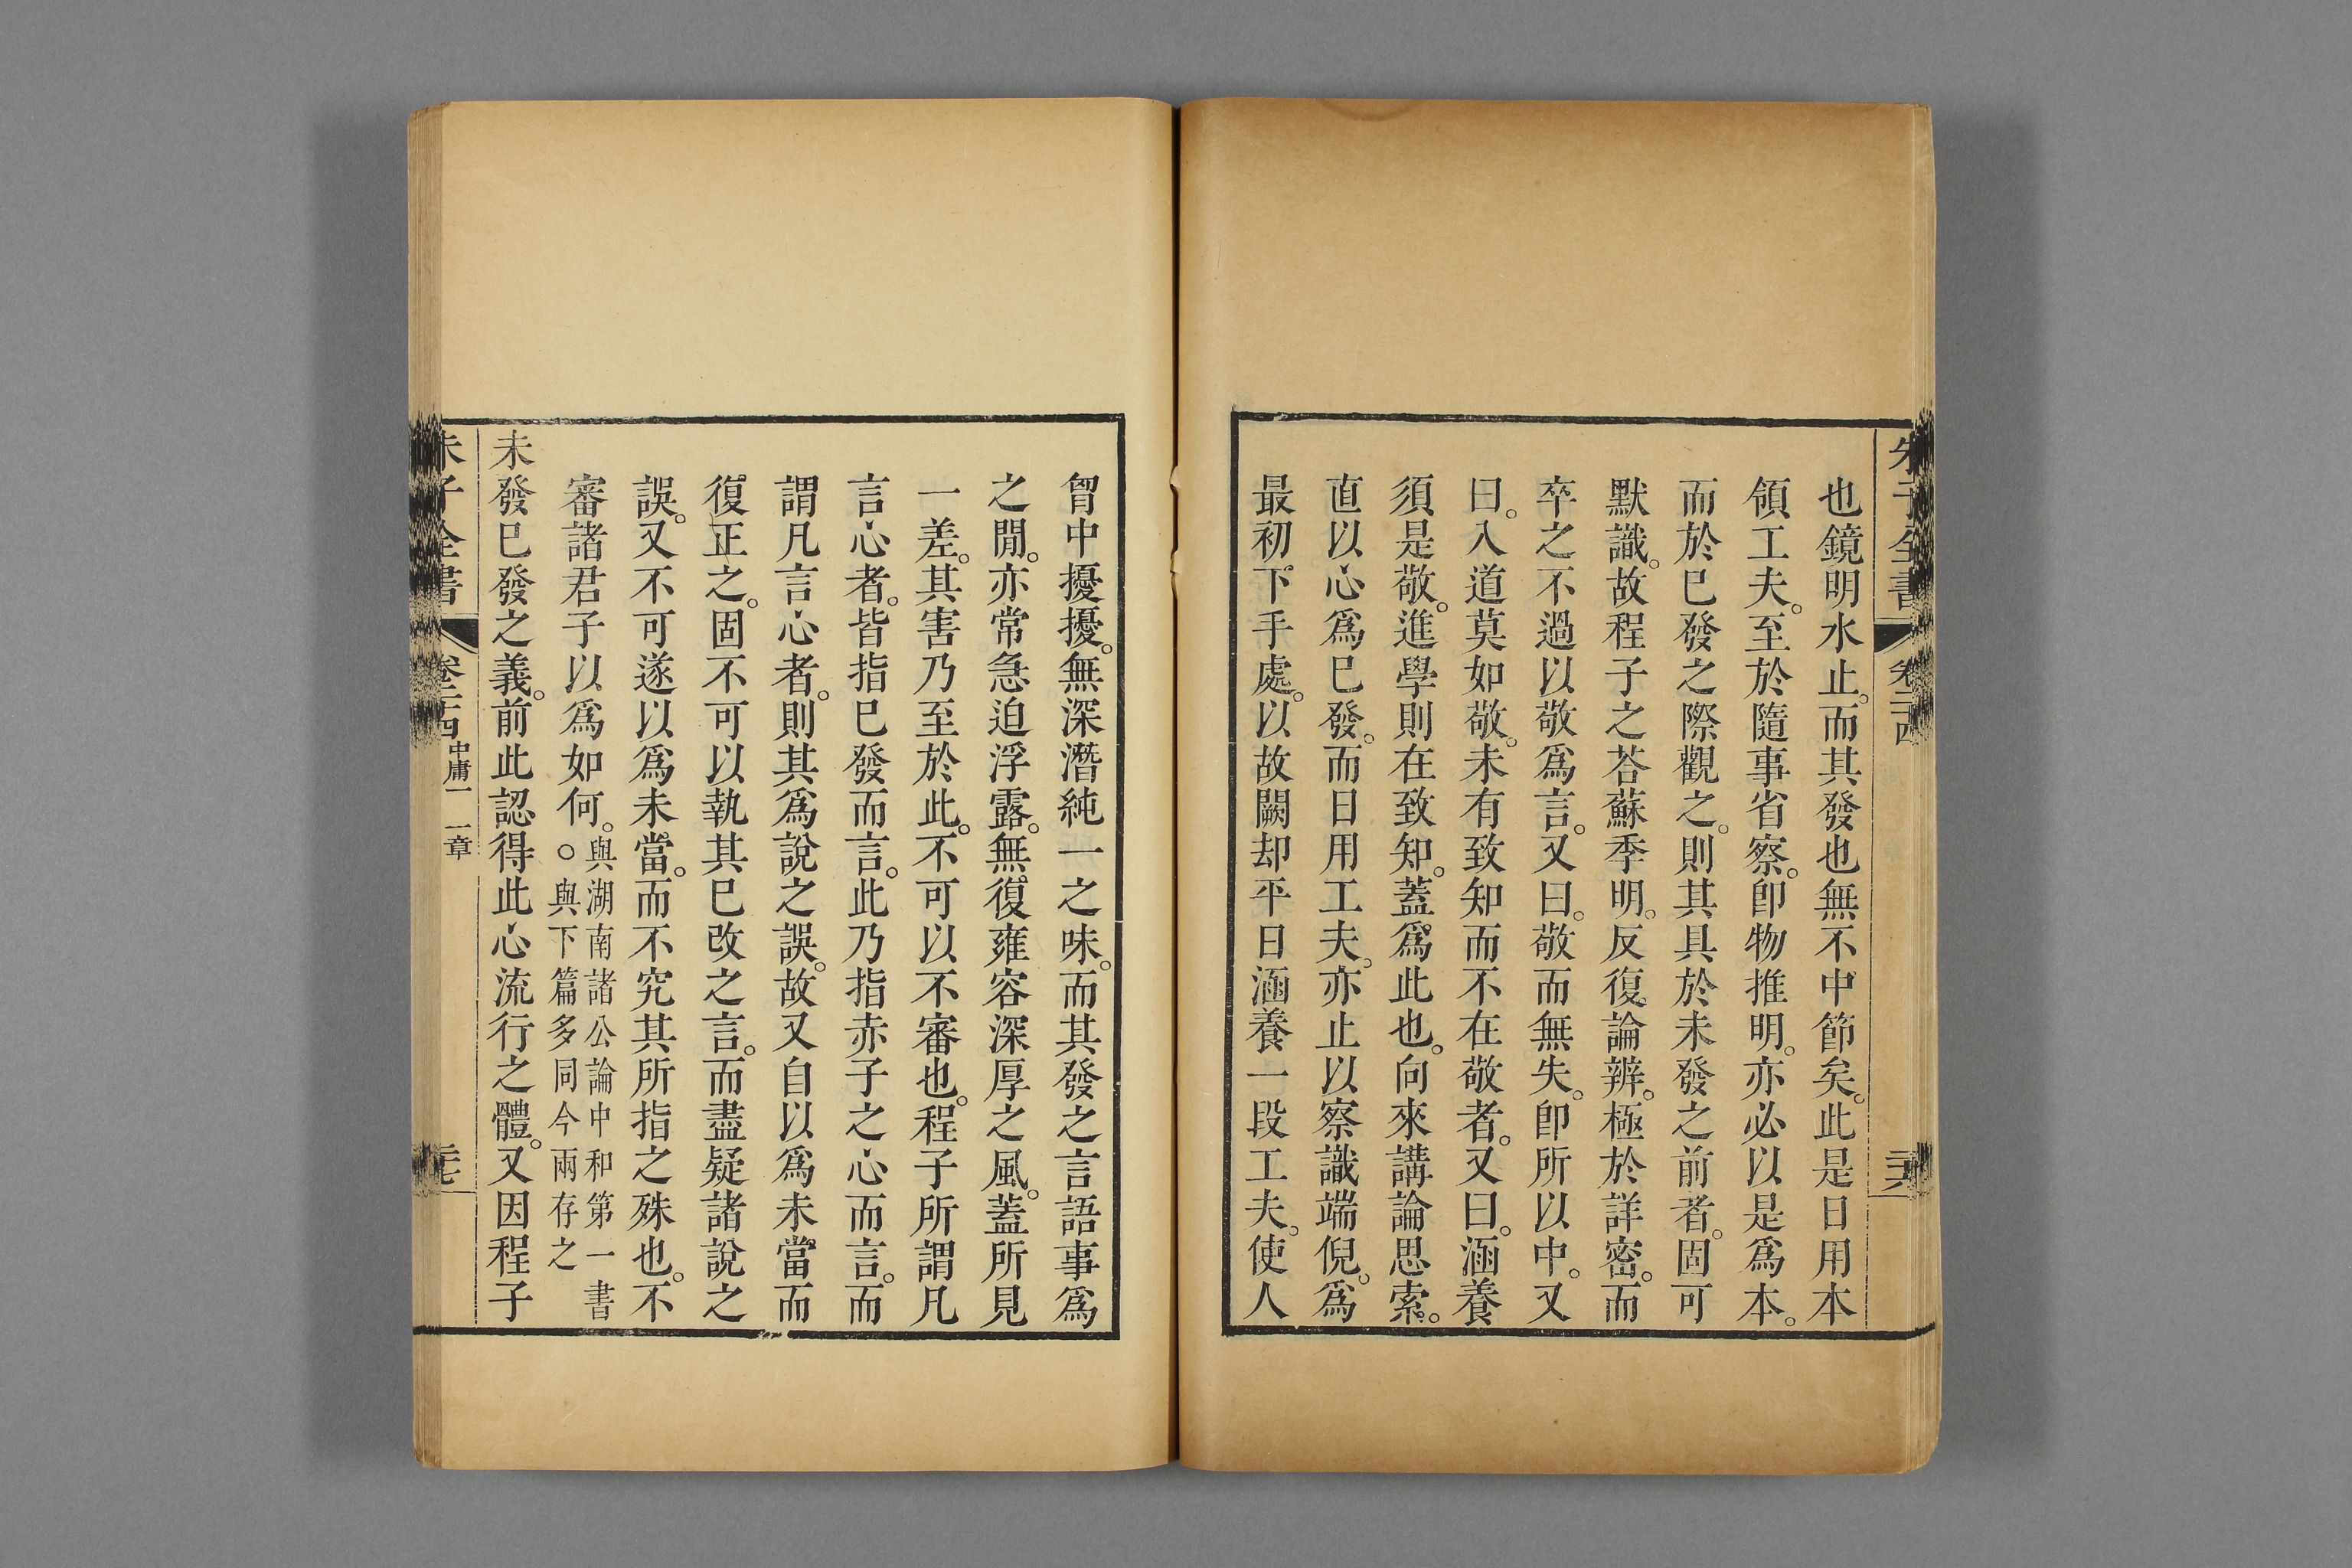 朱子全書 卷二十四
也鏡明水止。而其發也無不中節矣。此是日用本
領工夫。至於隨事省察。卽物推明。亦必以是爲本。
而於巳發之際觀之。則其具於未發之前者。固可
默識。故程子之荅蘇季明。反復論辨。極於詳密。而
卒之不過以敬爲言。又曰。敬而無失。卽所以中。又
曰。入道莫如敬。未有致知而不在敬者。又曰。涵養
須是敬。進學則在致知。蓋爲此也。向來講論思索。
直以心爲巳發。而日用工夫。亦止以察識端倪。爲
最初下手處。以故闕却平日涵養一段工夫。使人
胷中擾擾。無深潛純一之味。而其發之言語事爲
之閒。亦常急迫浮露。無復雍容深厚之風。蓋所見
一差。其害乃至於此。不可以不審也。程子所謂凡
言心者。皆指巳發而言。此乃指赤子之心而言。而
謂凡言心者。則其爲說之誤。故又自以爲未當而
復正之。固不可以執其巳改之言。而盡疑諸說之
誤。又不可遂以爲未當。而不究其所指之殊也。不
審諸君子以爲如何。與湖南諸公論中和第一書
○與下篇多同今兩存之
未發巳發之義。前此認得此心流行之體。又因程子
朱子全書 卷二十四 中庸一 一章